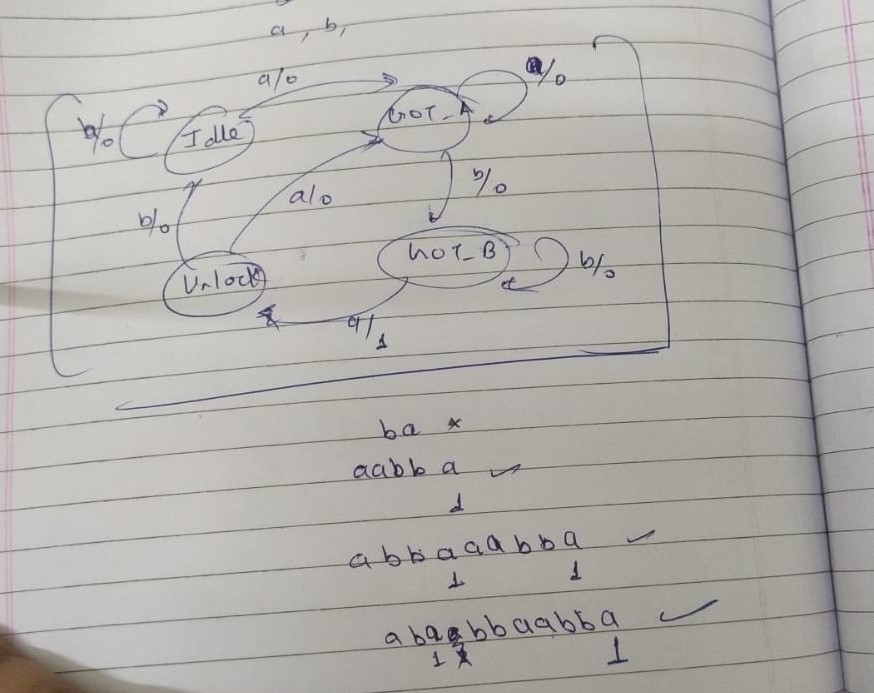 a, b,
a/0
a/0
b/0
Idle
GOT_A
b/0
a/0
b/0
Unlock
GOT_B
b/0
a/1
ba ×
aabba ✓
1
abbaaabba ✓
1 1
ababbaabba ✓
1 1